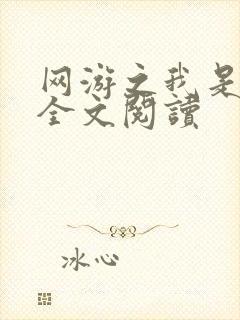 网游之我是
全文閱讀
冰心